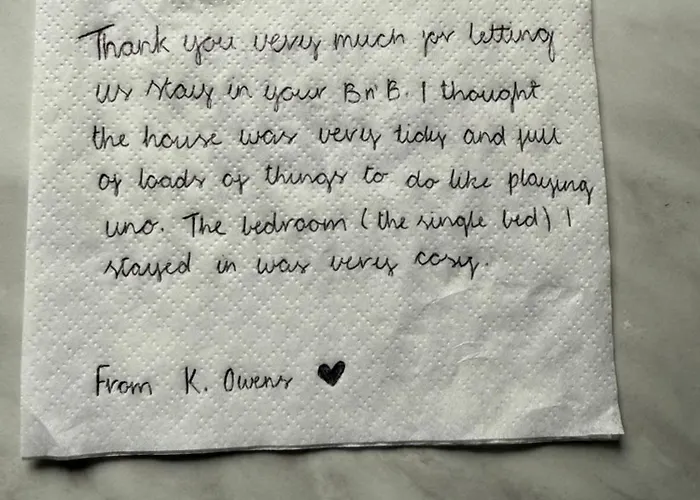 Thank you very much for letting
us stay in your BnB. I thought
the house was very tidy and full
of loads of things to do like playing
uno. The bedroom (the single bed) I
stayed in was very cosy.
From K. Owens ♥